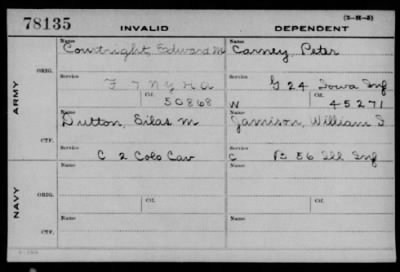 78135 INVALID DEPENDENT (3-H-5)
Name Name
Courtright, Edward M Carney, Peter
ORIG.
Service Service
F 7 N Y H A G 24 Iowa Inf
Ctf. Ctf.
50868 W 45271
ARMY
Name Name
Dutton, Silas M Jamison, William S
CTF.
Service Service
C 2 Colo Cav C B 56 Ill Inf
Name Name
ORIG.
Ctf. Ctf.
NAVY
Name Name
CTF.